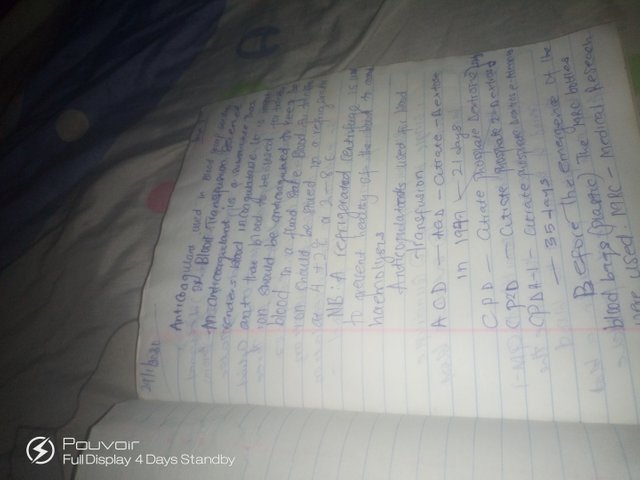 29/1/2020
Anticoagulants used in
or Blood Transfusion
An anticoagulant is a substance that
renders blood incoagulable. In
that blood to be used
should be anticoagulated to keep the
blood in a fluid state. Blood
should be stored in a refrigerator
at 4 ± 2°C or 2 - 8°C
NB: A refrigerated centrifuge is used
to prevent heating of the blood to avoid
haemolysis
Anticoagulants used in blood
Transfusion
ACD - Acid - Citrate - Dextrose
in 1949 - 21 days
CPD - Citrate phosphate Dextrose
CP2D - Citrate phosphate 2 Dextrose
CPDA-1 - Citrate phosphate Dextrose Adenine
- 35 days
Before the emergence of the
blood bags (plastic) The MRC bottles
were used MRC - Medical Research
Pouvoir
Full Display 4 Days Standby